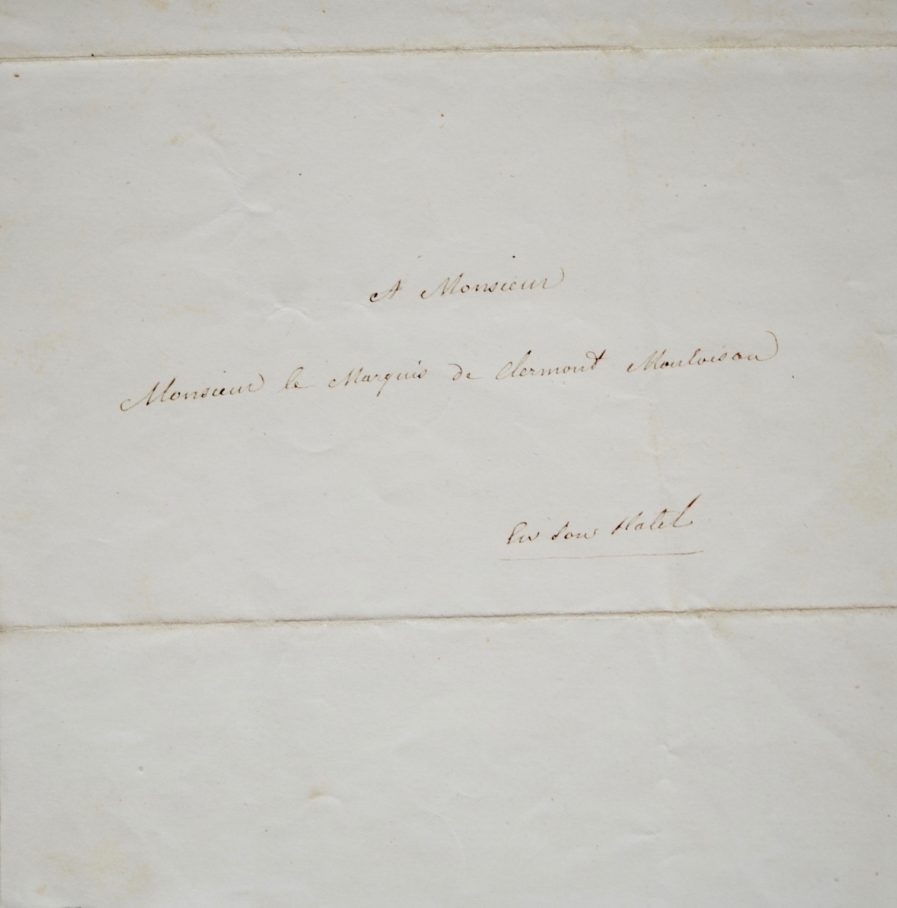 A Monsieur
Monsieur le Marquis de Clermont Montoison
En Son Hotel